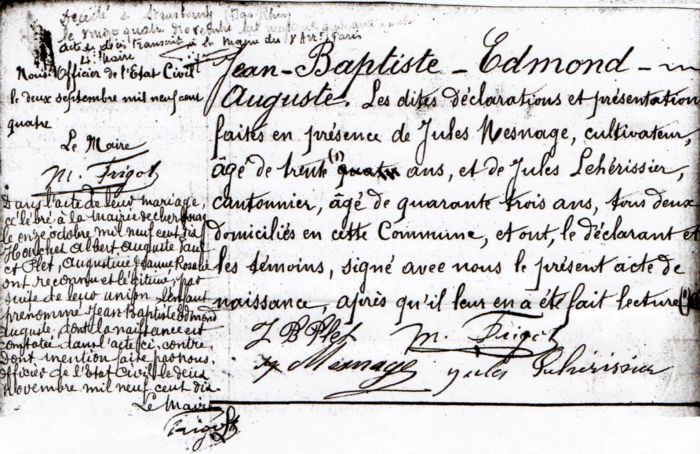 Décédé à Strasbourg (Bas Rhin)
le vingt quatre novembre mil neuf cent quarante
acte de décès transcrit à la mairie du Arrt Paris
Nous Officier de l'Etat Civil
le deux septembre mil neuf cent
quatre
Le Maire
M. Frigot
Dans l'acte de leur mariage,
célébré à la mairie de Cherbourg
le onze octobre mil neuf cent dix
Houchet Albert Auguste Paul
et Plet, Augustine Jeanne Rosalie
ont reconnu et légitimé, par
suite de leur union, l'enfant
prénommé Jean Baptiste Edmond
Auguste, dont la naissance est
constatée dans l'acte ci, contre
dont mention faite par nous,
officier de l'Etat Civil le deux
novembre mil neuf cent dix
Le Maire
Frigot
Jean-Baptiste-Edmond-
Auguste. Les dites déclarations et présentation
faites en présence de Jules Mesnage, cultivateur,
âgé de trente (1) quatre ans, et de Jules Lehérissier,
cantonnier, âgé de quarante trois ans, tous deux
domiciliés en cette Commune, et ont, le déclarant et
les témoins, signé avec nous le présent acte de
naissance, après qu'il leur en a été fait lecture
J B Plet M. Frigot
Mesnage Jules Lehérissier